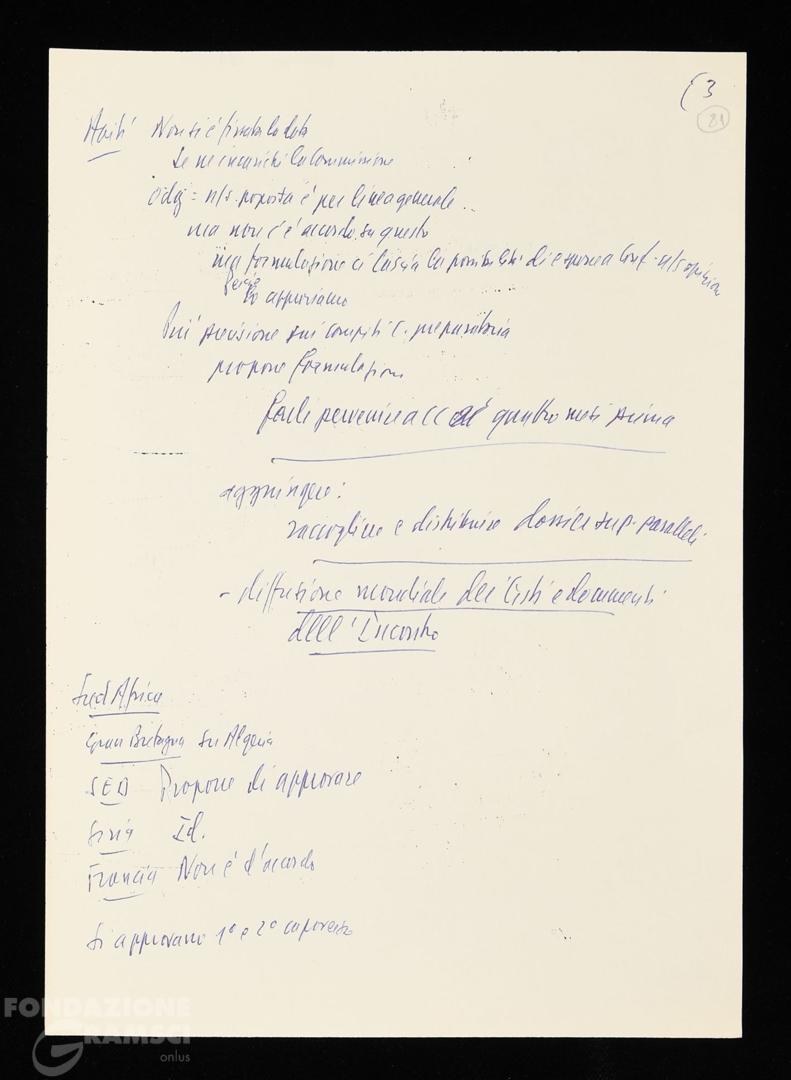 (3
81
Haiti Non si è fissata la data
Se ne incarichi la Commissione
odg = n/s. proposta è per linea generale
ma non c'è accordo su questo
ma formulazione ci lascia la possibilità di esporre a Conf. n/s opinion
perciò
lo appoviamo
Più precisione sui compiti C. preparatoria
propone formulazioni
quattro mesi prima
aggiungere:
raccogliere e distribuire dossier sup. paralleli
- diffusione mondiale dei testi e documenti
dell'Incontro
Sud Africa
Gran Bretagna su Algeria
SED Propone di approvare
Siria Id.
Francia Non è d'accordo
Si approvano 1° e 2° capoverso
FONDAZIONE
GRAMSCI
onlus